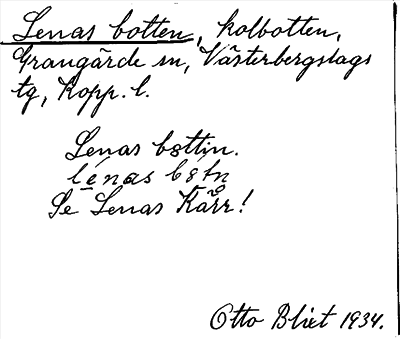 Lenas botten, kolbotten,
Grangärde sn, Västerbergslags
tg, Kopp. l.
Lenas bottin.
Se Lenas Kärr!
Otto Blixt 1934.